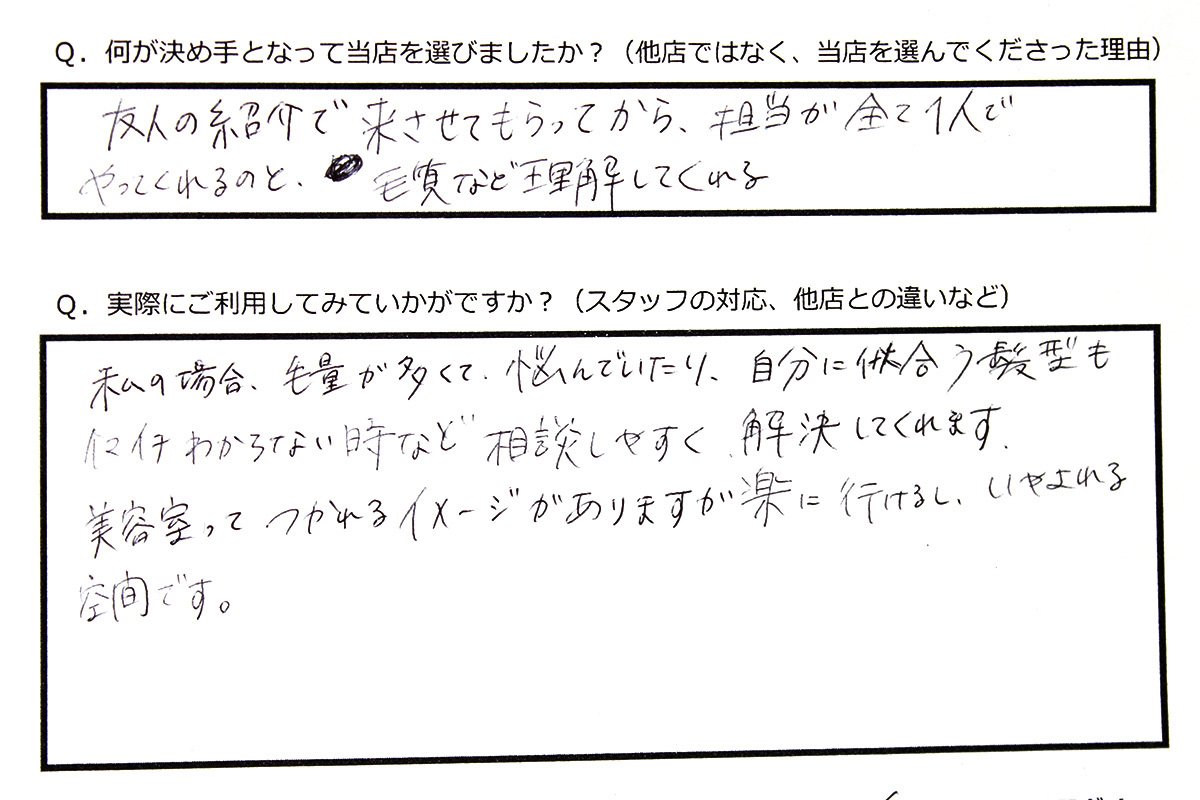 Q．何が決め手となって当店を選びましたか？（他店ではなく、当店を選んでくださった理由）
友人の紹介で来させてもらってから、担当が全て1人で
やってくれるのと、毛質など理解してくれる
Q．実際にご利用してみていかがですか？（スタッフの対応、他店との違いなど）
私の場合、毛量が多くて、悩んでいたり、自分に似合う髪型も
イマイチわからない時など相談しやすく、解決してくれます。
美容室ってつかれるイメージがありますが楽に行けるし、いやされる
空間です。